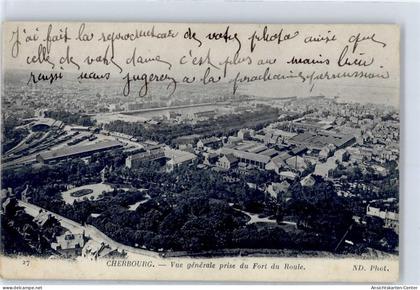 J'ai fait la reproduction de votre photo ainsi que
celle de votre dame c'est plus ou moins bien
réussi nous jugerons a la prochaine permission
27 CHERBOURG. — Vue générale prise du Fort du Roule. ND. Phot.
www.ansichtskartenversand.com